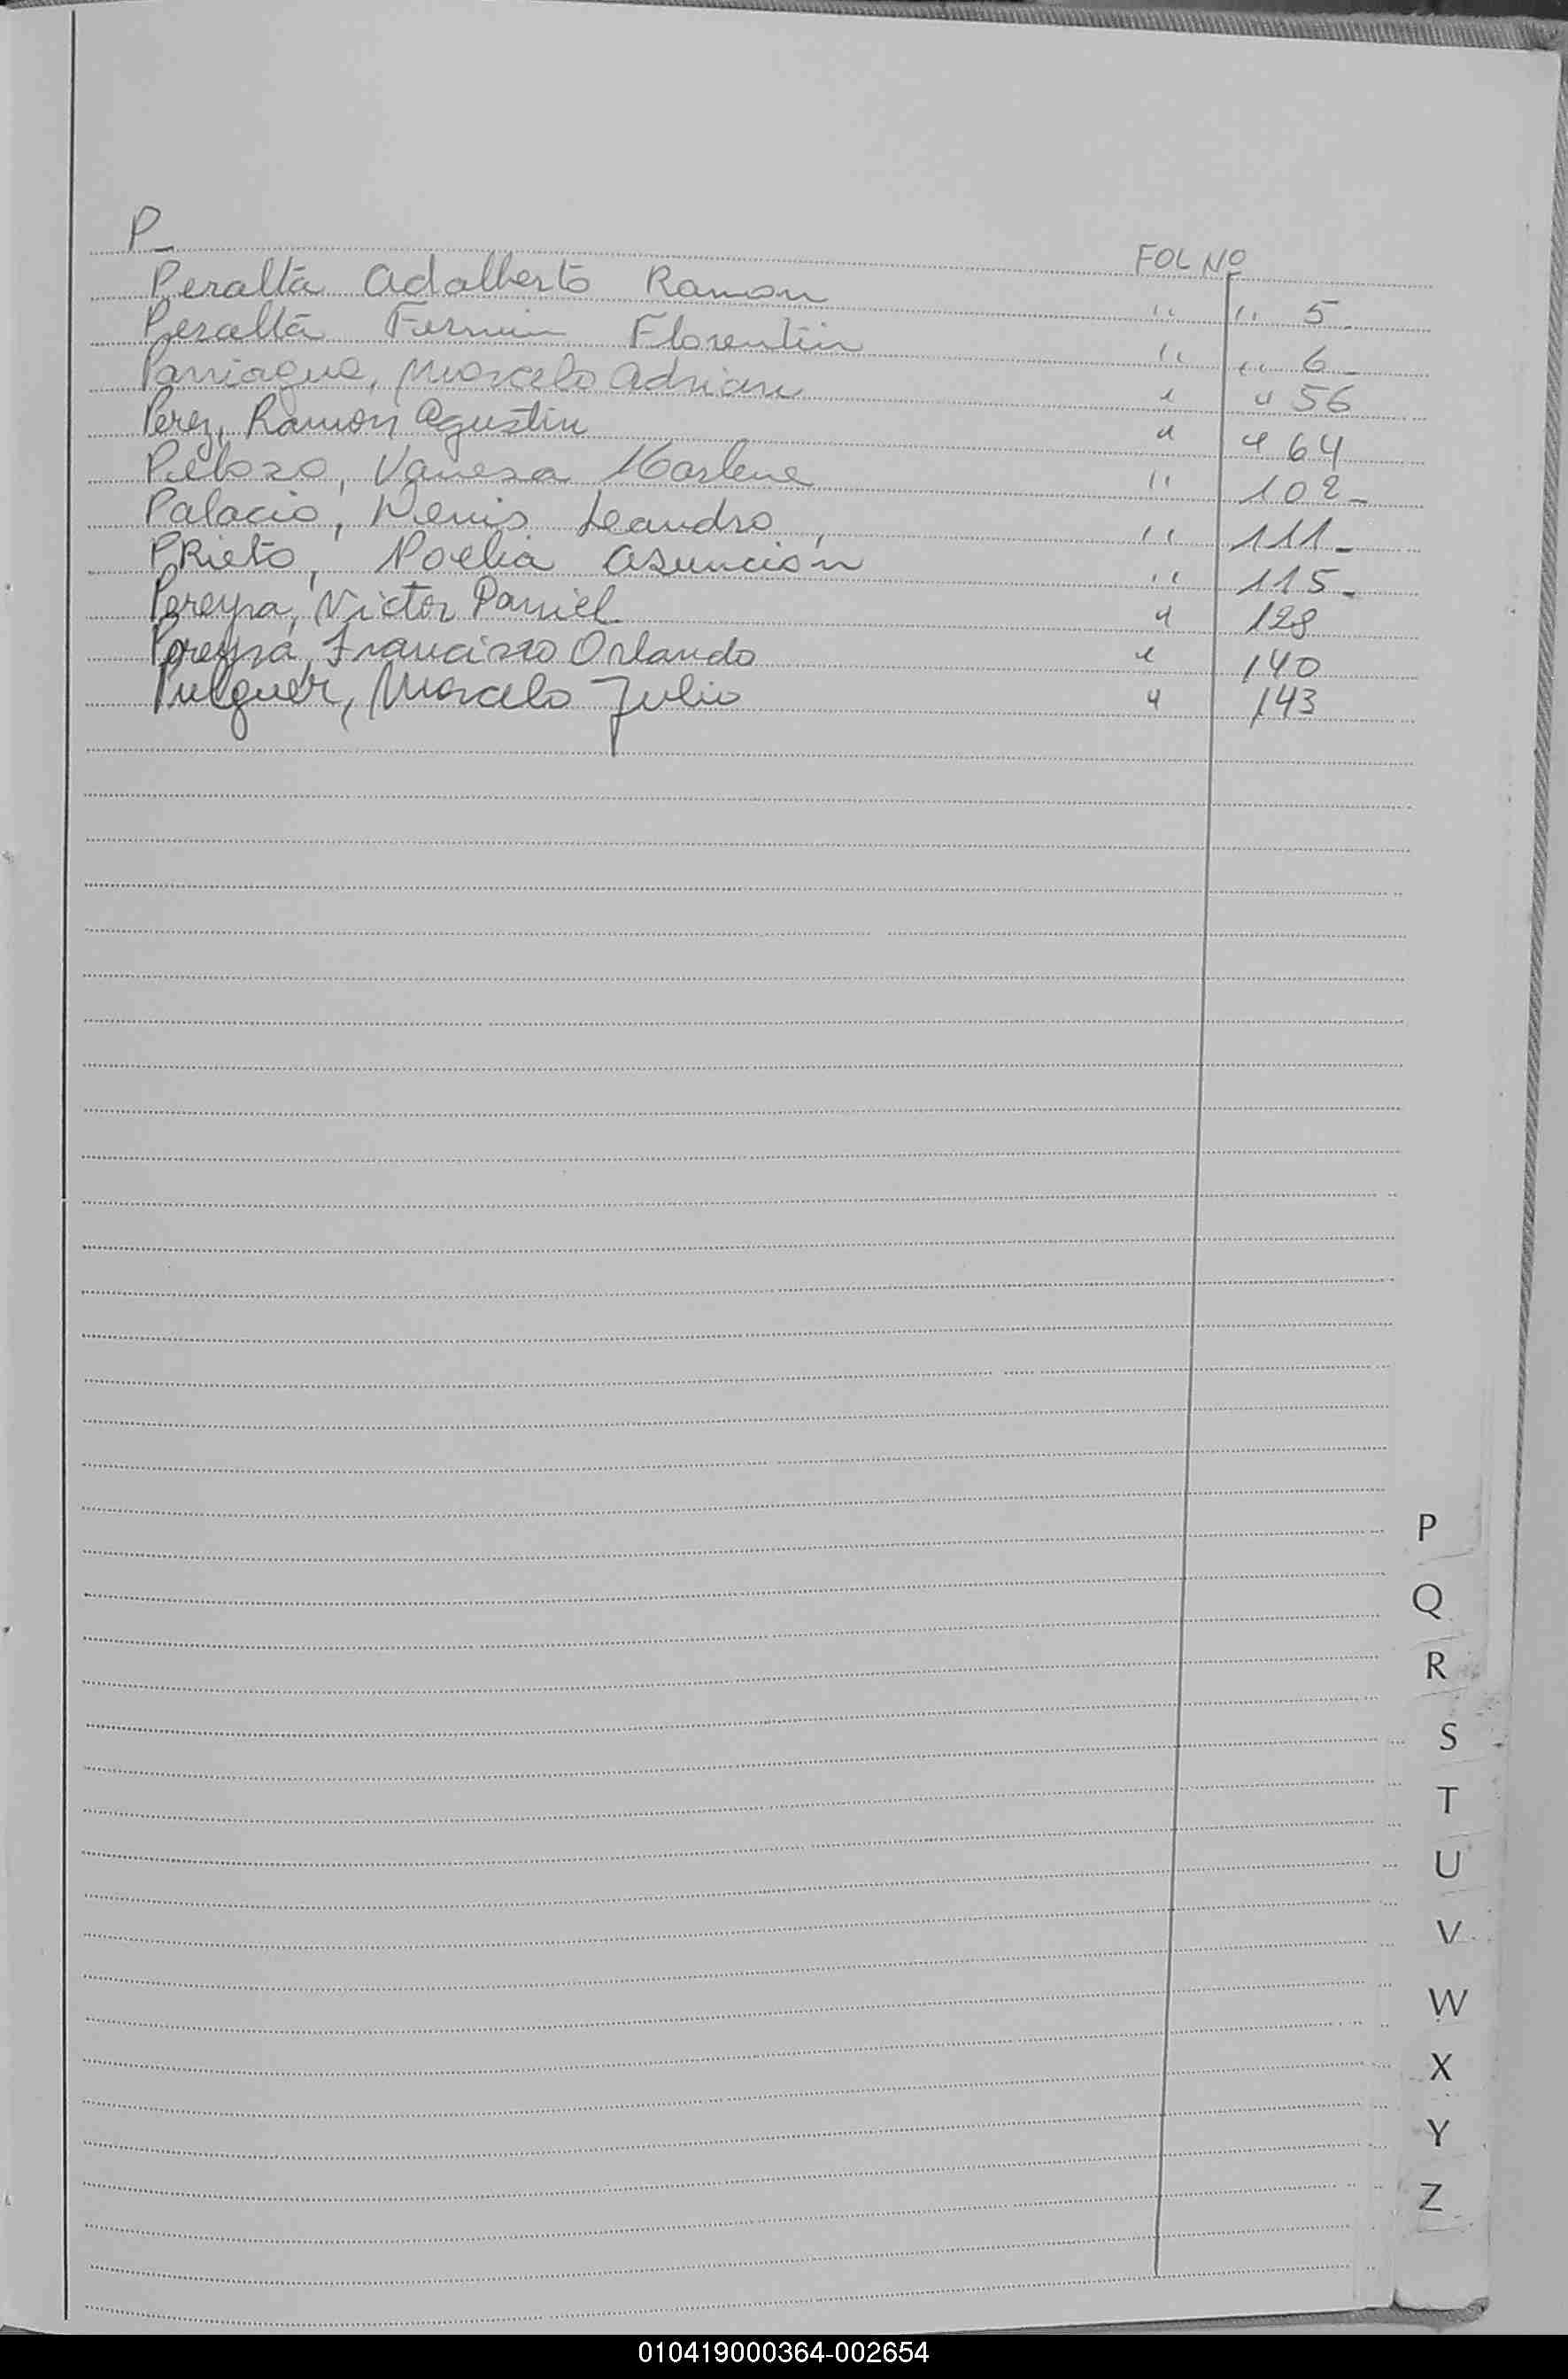 P_ FOL Nº
Peralta Adalberto Ramon " " 5_
Peralta Fermin Florentin " " 6_
Parriagua, Marcelo Adrian " " 56
Perez, Ramon Agustin " " 64
Pelozo, Vanesa Marlene " 102_
Palacio, Denis Leandro, " 111_
PRieto, Noelia Asunción " 115_
Pereyra, Victor Daniel " 128
Pereyra, Francisco Orlando " 140
Pulguer, Marcelo Julio " 143
P
Q
R
S
T
U
V
W
X
Y
Z
010419000364-002654